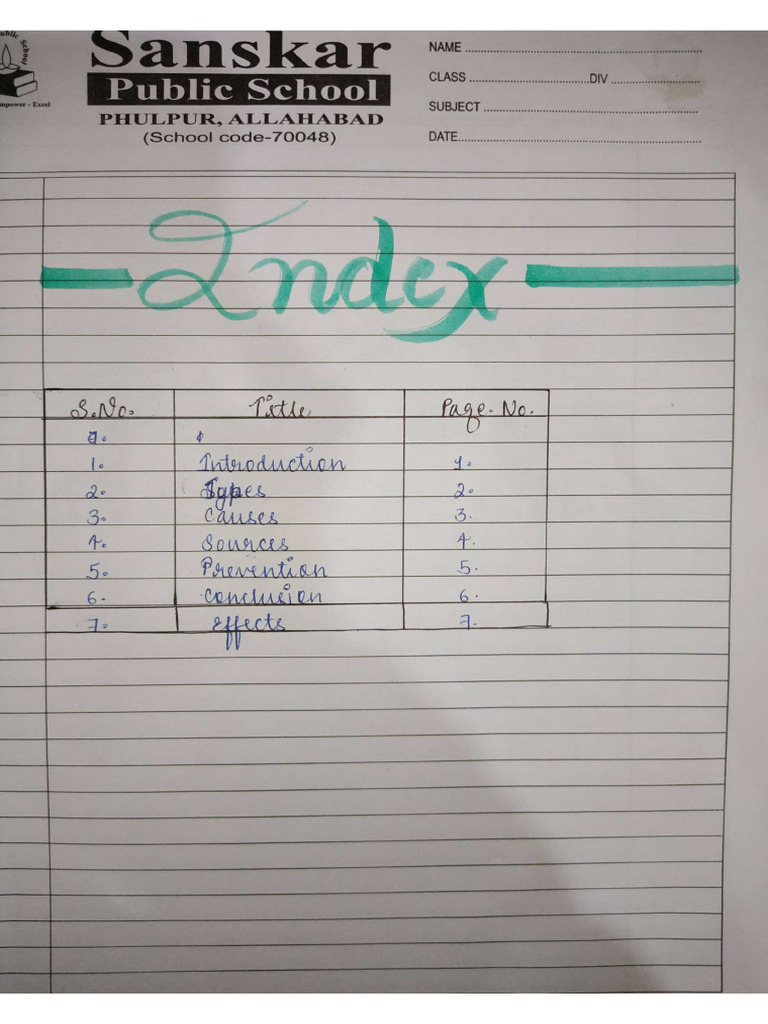 Public School
Empower - Excel
Sanskar
Public School
PHULPUR, ALLAHABAD
(School code-70048)
NAME
CLASS DIV
SUBJECT
DATE
Index
S.No. Title Page. No.
1. Introduction 1.
2. Types 2.
3. Causes 3.
4. Sources 4.
5. Prevention 5.
6. Conclusion 6.
7. Effects 7.